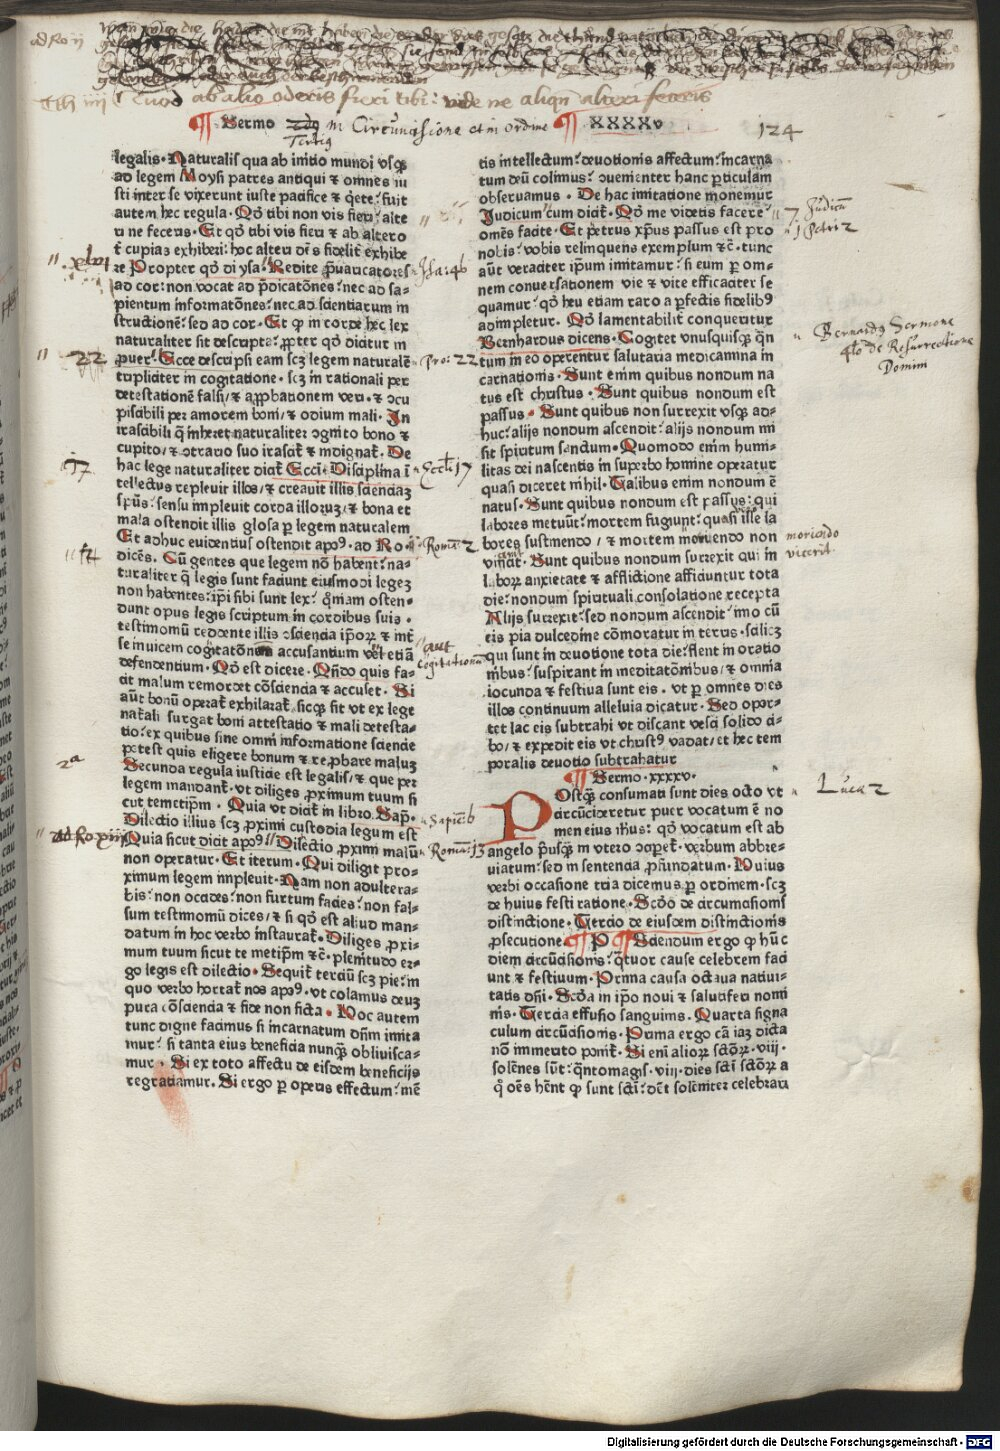 ad Ro ij
Tob iiij Quod ab alio oderis fieri tibi: vide ne aliqn̄ alteri feceris
¶ Sermo Tertiꝯ in Circūcisione et in ordine ¶ XXXXv 124
legalis· Naturalis qua ab initio mundi vsqꝫ
ad legem Moysi patres antiqui ⁊ omnes iu
sti inter se vixerunt iuste pacifice ⁊ q̄ete: fuit
autem hec regula· Qd̓ tibi non vis fieri alte
ri ne feceris· Et qd̓ tibi vis fieri ⁊ ab altero
t̄ cupias exhiberi: hoc alteri de̅s fidelit̓ exhibe
re Propter qd̓ di ysa· Redite p̱uaricatores
ad cor: non vocat ad p̄dicatōnes: nec ad sa-
pientum informatōnes: nec ad scientiarum in
structionē: sed ad cor· Et ꝙ in corde hec lex
naturaliter sit descripta: ꝓpter qd̓ dicitur in
puer̓. Ecce descripsi eam scꝫ legem naturalē
tripliciter in cogitatione· scꝫ in rationali per
detestationē falsi/ ⁊ aꝓbationem veri· ⁊ ꝯcu
piscibili per amorem boni/ ⁊ odium mali· In
irascibili q̄ inheret naturaliter ꝯgnito bono ⁊
cupito/ ⁊ ꝯtrario suo irascit̓ ⁊ indignat̓· De
hac lege naturaliter dicit̓ Ecci· Disciplina ī
tellectus repleuit illos/ ⁊ creauit illis sciēciaꝫ
spūs: sensu impleuit corda illoruꝫ/ ⁊ bona et
mala ostendit illis glosa ꝑ legem naturalem
Et adhuc euidentius ostendit apoꝰ· ad Ro·
dicēs· Cū gentes que legem nō habent: na-
turaliter q̄ legis sunt faciunt eiusmodi legeꝫ
non habentes: ip̄i sibi sunt lex: qm̄iam osten-
dunt opus legis scriptum in cordibus suis·
testimoniū reddente illis ꝯsciencia ip̄oꝝ ⁊ int̓
se inuicem cogitatōnū accusantium vel etiā
defendentium· Qd̓ est dicere· Qn̄do quis fa-
cit malum remordet cōsciencia ⁊ accuset· Si
aūt bonū operat̓ exhilarat̓· sicqꝫ fit vt ex lege
nat̓ali surgat boni attestatio ⁊ mali detesta-
tio: ex quibus sine omni informatione sciencie
potest quis eligere bonum ⁊ reꝓbare maluꝫ
Secunda regula iusticie est legalis/ ⁊ que per
legem mandant̓· vt diliges ꝓximum tuum si
cut temetip̄m· Quia vt dicit̓ in libro Sap̄·
Dilectio illius scꝫ ꝓximi custodia legum est
Quia sicut dicit apoꝰ· Dilectio ꝓximi malū
non operatur· Et iterum· Qui diligit pro-
ximum legem impleuit· Nam non adultera-
bis: non occides· non furtum facies: non fal-
sum testimoniū dices/ ⁊ si qd̓ est aliud man-
datum in hoc verbo instaurat̓· Diliges ꝓxi-
mum tuum sicut te metip̄m ⁊c̄· plenitudo er-
go legis est dilectio· Sequit̓ terciū scꝫ pie: in
quo verbo hortat̓ nos apoꝰ· vt colamus deuꝫ
pura cōsciencia ⁊ fide non ficta· Hoc autem
tunc digne facimus si incarnatum dn̄m imita
mur: si tanta eius beneficia nunqꝫ obliuisca-
mur· Si ex toto affectu de eisdem beneficijs
regratiamur· Si ergo ꝑ operis effectum: mē
tis intellectum: deuotionis affectum: incarna
tum deū colimus: ꝯuenienter hanc ꝑticulam
obseruamus· De hac imitatione monemur
Judicum cum dicit̓· Qd̓ me videtis facere
om̄es facite· Et petrus xp̄us passus est pro
nobis: vobis relinquens exemplum ⁊c̄· tunc
aūt veraciter ip̄um imitamur: si eum ꝑ om-
nem conuersationem vie ⁊ vite efficaciter se
quamur· qd̓ heu etiam raro a ꝑfectis fidelibꝰ
adimpletur· Qd̓ lamentabilit̓ conqueritur
Bernhardus dicens· Cogitet vnusquisqꝫ qn̄
tum in eo operentur salutaria medicamina in
carnationis· Sunt enim quibus nondum na
tus est christus· Sunt quibus nondum est
passus· Sunt quibus non surrexit vsqꝫ ad-
huc· alijs nondum ascendit: alijs nondum mi
sit spiritum sanctum· Quomodo enim humi-
litas dei nascentis in superbo homine operatur
quasi diceret nihil· Talibus enim nondum ē
natus· Sunt quibus nondum est passus: qui
labores metuūt: mortem fugiunt: quasi ille la
bores sustinendo/ ⁊ mortem moriendo non
vincit· Sunt quibus nondum surrexit qui in
laboꝝ anxietate ⁊ afflictione afficiuntur tota
die: nondum spirituali consolatione recepta
Alijs surrexit: sed nondum ascendit: imo cū
eis pia dulcedine cōmoratur in terris· sciliꝫ
qui sunt in deuotione tota die: flent in oratio
nibus: suspirant in meditatōnibus/ ⁊ omnia
iocunda ⁊ festiua sunt eis· vt ꝑ omnes dies
illos continuum alleluia dicatur· Sed opor-
tet lac eis subtrahi vt discant vesci solido ci-
bo/ ⁊ expedit eis vt christꝰ vadat/ et hec tem
poralis deuotio subtrahatur
¶ Sermo·xxxxv·
POstqꝫ consumati sunt dies octo vt
circūcideretur puer vocatum ē no
men eius ihūs: qd̓ vocatum est ab
angelo p̱usqꝫ in vtero ꝯcipet̓· verbum abbre-
uiatum: sed in sentencia ꝓfundatum· Huius
verbi occasione tria dicemus ꝑ ordinem· scꝫ
de huius festi ratione· Scd̓o de circumcisiōis
distinctione· Tercio de eiusdem distinctionis
ꝓsecutione ¶ P ¶ Sciendum ergo ꝙ hūc
diem circūcisiōis: q̄tuor cause celebrem faci
unt ⁊ festiuum· Prima causa octaua natiui-
tatis dn̄i· Scd̓a in ip̄o noui ⁊ salutiferi nomi
nis· Tercia effusio sanguinis· Quarta signa
culum circūcisiōis· Prima ergo cā iaꝫ dicta
nō immerito ponit̓· Si enī alioꝝ sc̄toꝝ· viij·
solēnes sūt: qn̄tomagis· viij· dies sc̄ti sc̄toꝝ a
q̊ oēs hn̄t ꝙ sunt sc̄ti: dēt solēniter celebrari
xlvi
Jsa: 46
22
Pro: 22
17
Eccli 17
Roma: 2
aut
cogitationū
2ª
Sapiē: 6
ad Ro xiij
Roma: 13
7 Judicū
1 Petri 2
Bernardꝯ Sermone
4to de Resurrectione
Domini
moriēdo
vicerit
Luca 2
Digitalisierung gefördert durch die Deutsche Forschungsgemeinschaft - DFG